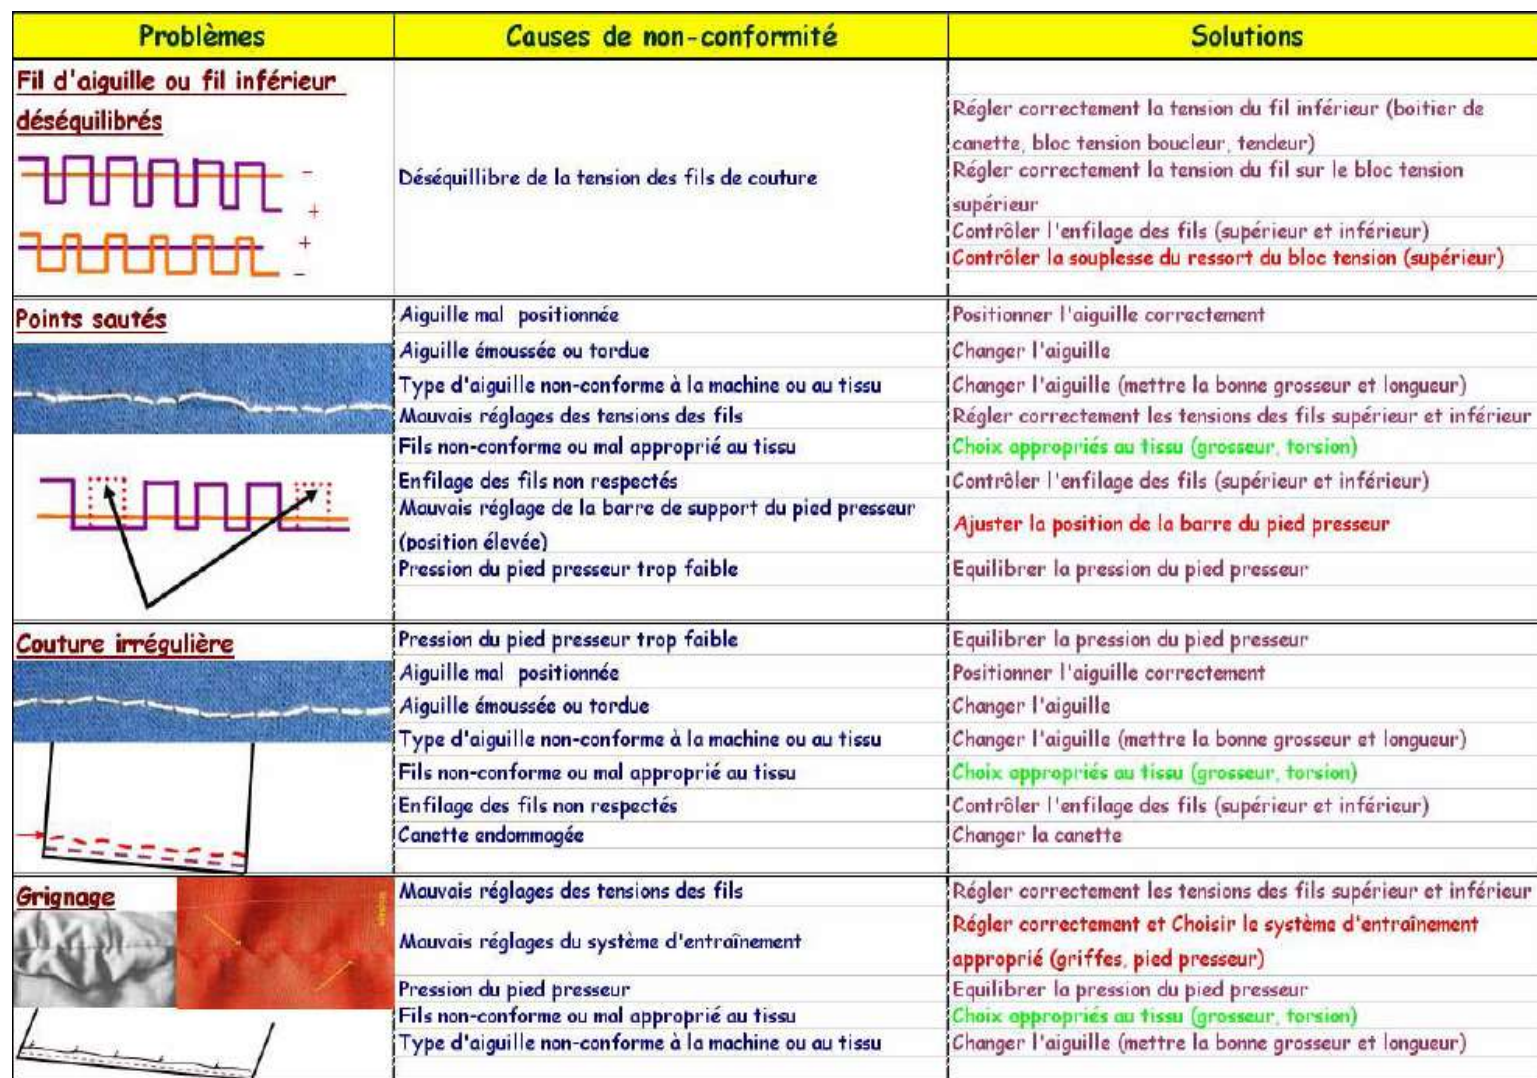 Problèmes
Causes de non-conformité
Solutions
Fil d'aiguille ou fil inférieur
déséquilibrés
-
+
+
-
Déséquillibre de la tension des fils de couture
Régler correctement la tension du fil inférieur (boitier de
canette, bloc tension boucleur, tendeur)
Régler correctement la tension du fil sur le bloc tension
supérieur
Contrôler l'enfilage des fils (supérieur et inférieur)
Contrôler la souplesse du ressort du bloc tension (supérieur)
Points sautés
Aiguille mal positionnée
Positionner l'aiguille correctement
Aiguille émoussée ou tordue
Changer l'aiguille
Type d'aiguille non-conforme à la machine ou au tissu
Changer l'aiguille (mettre la bonne grosseur et longueur)
Mauvais réglages des tensions des fils
Régler correctement les tensions des fils supérieur et inférieur
Fils non-conforme ou mal approprié au tissu
Choix appropriés au tissu (grosseur, torsion)
Enfilage des fils non respectés
Contrôler l'enfilage des fils (supérieur et inférieur)
Mauvais réglage de la barre de support du pied presseur
(position élevée)
Ajuster la position de la barre du pied presseur
Pression du pied presseur trop faible
Equilibrer la pression du pied presseur
Couture irrégulière
Pression du pied presseur trop faible
Equilibrer la pression du pied presseur
Aiguille mal positionnée
Positionner l'aiguille correctement
Aiguille émoussée ou tordue
Changer l'aiguille
Type d'aiguille non-conforme à la machine ou au tissu
Changer l'aiguille (mettre la bonne grosseur et longueur)
Fils non-conforme ou mal approprié au tissu
Choix appropriés au tissu (grosseur, torsion)
Enfilage des fils non respectés
Contrôler l'enfilage des fils (supérieur et inférieur)
Canette endommagée
Changer la canette
Grignage
Mauvais réglages des tensions des fils
Régler correctement les tensions des fils supérieur et inférieur
Mauvais réglages du système d'entraînement
Régler correctement et Choisir le système d'entraînement
approprié (griffes, pied presseur)
Pression du pied presseur
Equilibrer la pression du pied presseur
Fils non-conforme ou mal approprié au tissu
Choix appropriés au tissu (grosseur, torsion)
Type d'aiguille non-conforme à la machine ou au tissu
Changer l'aiguille (mettre la bonne grosseur et longueur)